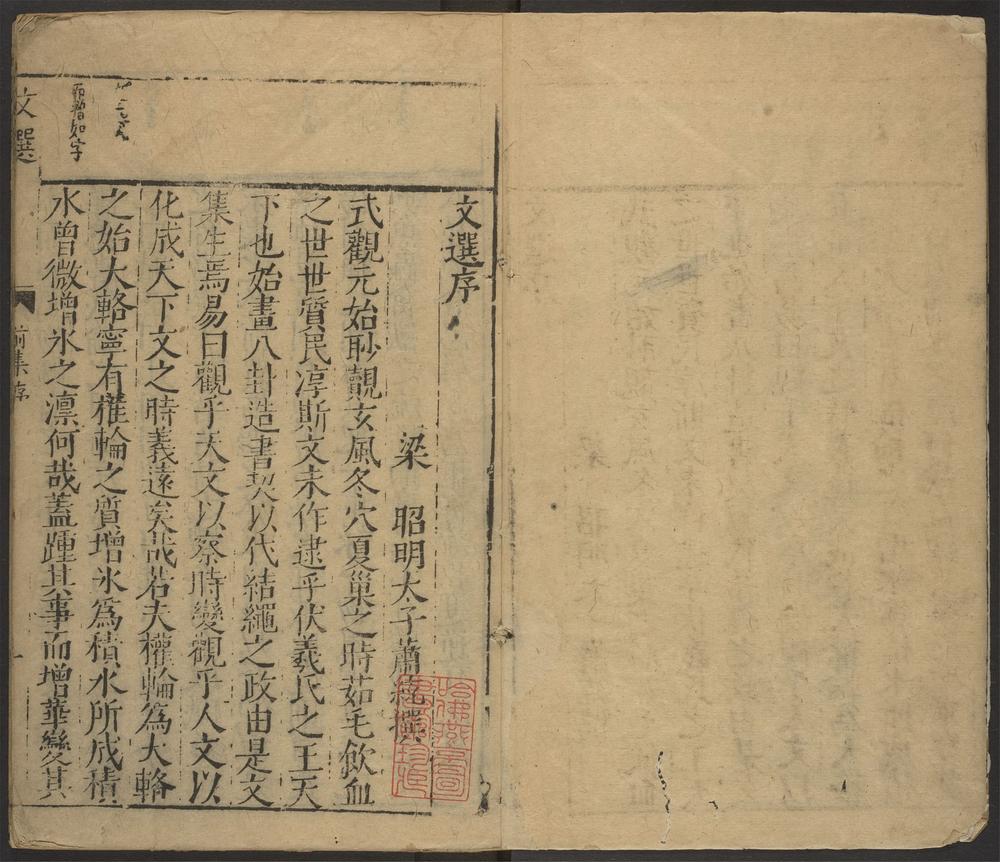 文選序
梁 昭明太子蕭統撰
式觀元始眇覿玄風冬穴夏巢之時茹毛飲血
之世世質民淳斯文未作逮乎伏羲氏之王天
下也始畫八卦造書契以代結繩之政由是文
集生焉易曰觀乎天文以察時變觀乎人文以
化成天下文之時義遠矣哉若夫權輪為大輅
之始大輅寧有椎輪之質增氷為積水所成積
水曾微增氷之凛何哉蓋踵其事而增華變其
增如字
文選
前集序
哈佛燕京圖
書館珍藏印